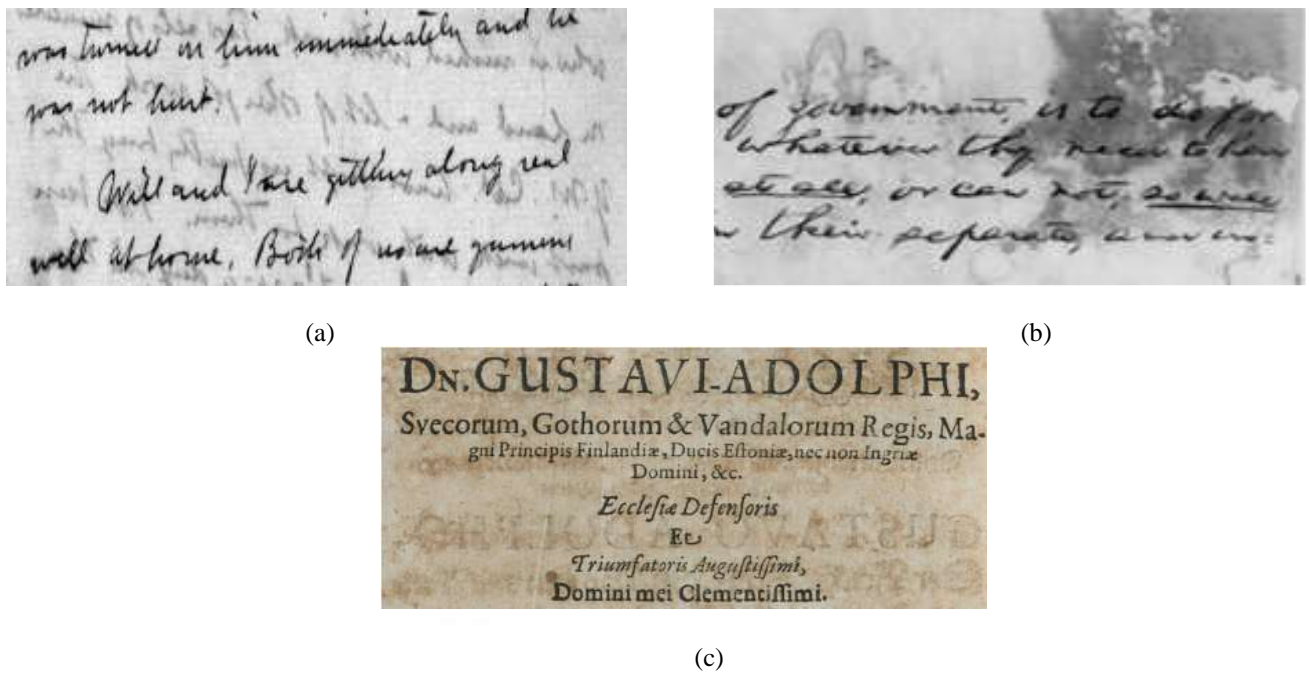 was turned on him immediately and he
was not hurt.
Will and I are getting along real
well at home. Both of us are gumine
(a)
of government, is to do for
whatever they need to have
at all, or can not, so well
their separate, and in=
(b)
DN. GUSTAVI-ADOLPHI,
Svecorum, Gothorum & Vandalorum Regis, Ma-
gni Principis Finlandiæ, Ducis Eſtoniæ, nec non Ingriæ
Domini, &c.
Eccleſiæ Defenſoris
Et
Triumfatoris Auguſtiſſimi,
Domini mei Clementiſſimi.
(c)